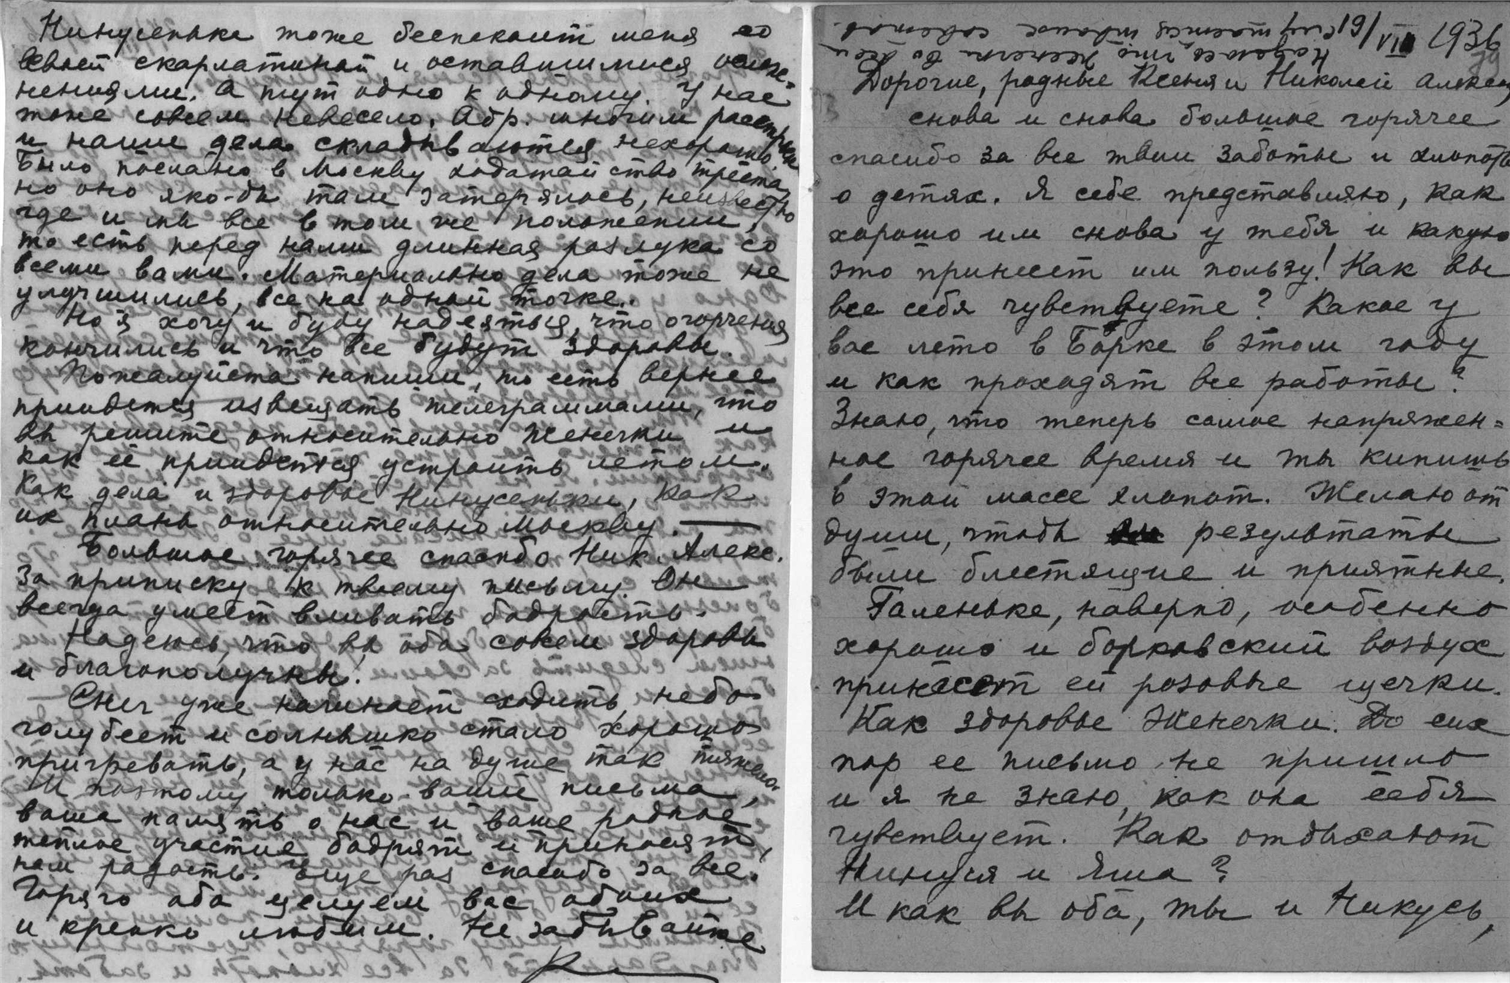 Нинусенька тоже беспокоит меня со
своей скарлатиной и оставшимися ослож-
нениями. А тут одно к одному. У нас
тоже совсем невесело. Абр. многим расстроен
и наши дела складываются нехорошо.
Было послано в Москву ходатайство треста,
но оно яко-бы там затерялось, неизвестно
где и мы все в том же положении,
то есть перед нами длинная разлука со
всеми вами. Материально дела тоже не
улучшились, все на одной точке.
Но я хочу и буду надеяться, что огорчения
кончились и что все будут здоровы.
Пожалуйста напиши, то есть вернее
придется извещать телеграммами, что
вы решите относительно Женечки и
как ее придется устроить летом.
Как дела и здоровье Нинусеньки, как
их планы относительно Москвы. —
Большое горячее спасибо Ник. Алекс.
за приписку к твоему письму. Он
всегда умеет вливать бодрость.
Надеюсь, что вы оба совсем здоровы
и благополучны!
Снег уже начинает сходить, небо
голубеет и солнышко стало хорошо
пригревать, а у нас на душе так тяжело.
И поэтому только ваши письма,
ваша память о нас и ваше родное
теплое участие бодрят и приносят
нам радость. Еще раз спасибо за все.
Горячо оба целуем вас обоих
и крепко любим. Не забывайте
19/VII 1936
Надеюсь, что Женечки до сей
Дорогие, родные Ксеня и Николай Алекса
снова и снова большое горячее
спасибо за все твои заботы и хлопоты
о детях. Я себе представляю, как
хорошо им снова у тебя и какую
это принесет им пользу! Как вы
все себя чувствуете? Какое у
вас лето в Борке в этом году
и как проходят все работы?
Знаю, что теперь самое напряжен-
ное горячее время и ты кипишь
в этой массе хлопот. Желаю от
души, чтобы результаты
были блестящие и приятные.
Галеньке, наверно, особенно
хорошо и борковский воздух
принесет ей розовые щечки.
Как здоровье Женечки. До сих
пор ее письмо не пришло
и я не знаю, как она себя
чувствует. Как отдыхают
Нинуся и Яша?
И как вы оба, ты и Никусь,